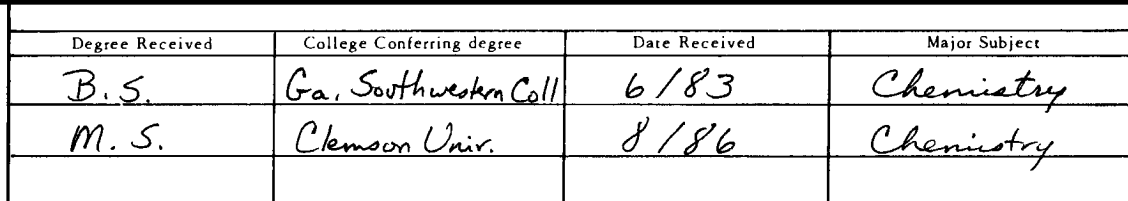 Degree Received College Conferring degree Date Received Major Subject
B.S. Ga. Southwestern Coll 6/83 Chemistry
M.S. Clemson Univ. 8/86 Chemistry